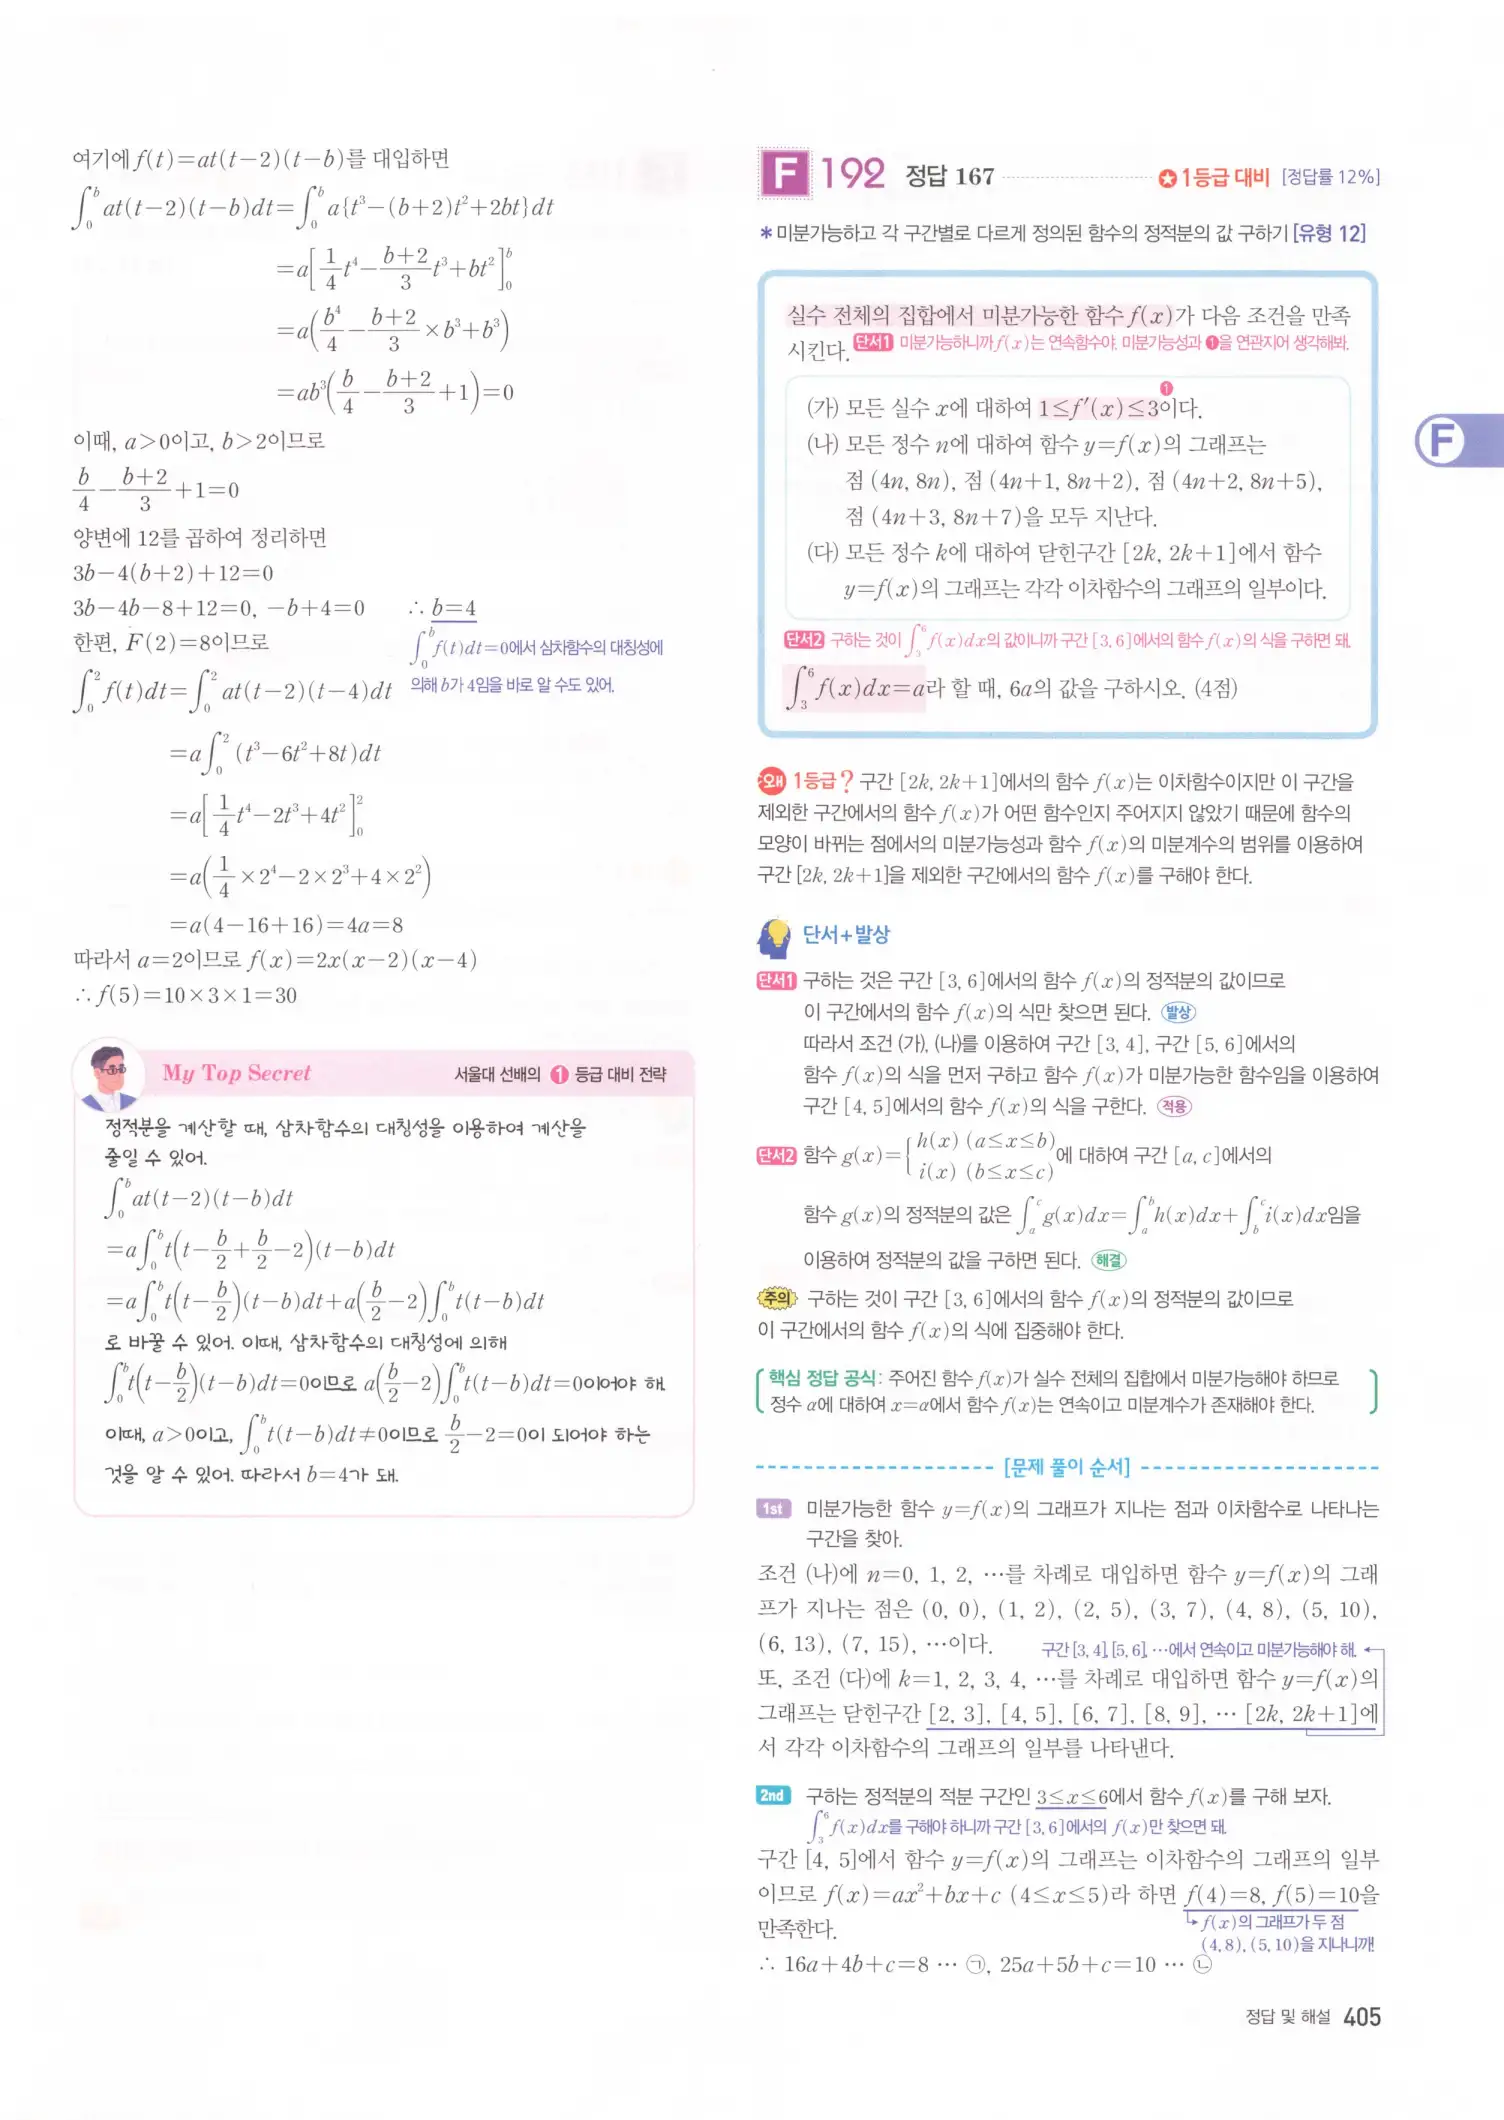 여기에 f(t)=at(t-2)(t-b)를 대입하면
∫₀ᵇ at(t-2)(t-b)dt=∫₀ᵇ a{t³-(b+2)t²+2bt}dt
=a[1/4 t⁴-(b+2)/3 t³+bt²]₀ᵇ
=a(b⁴/4-(b+2)/3×b³+b³)
=ab³(b/4-(b+2)/3+1)=0
이때, a>0이고, b>2이므로
b/4-(b+2)/3+1=0
양변에 12를 곱하여 정리하면
3b-4(b+2)+12=0
3b-4b-8+12=0, -b+4=0 ∴ b=4
한편, F(2)=8이므로
∫₀ᵇ f(t)dt=0에서 삼차함수의 대칭성에
의해 b가 4임을 바로 알 수도 있어.
∫₀² f(t)dt=∫₀² at(t-2)(t-4)dt
=a∫₀² (t³-6t²+8t)dt
=a[1/4 t⁴-2t³+4t²]₀²
=a(1/4×2⁴-2×2³+4×2²)
=a(4-16+16)=4a=8
따라서 a=2이므로 f(x)=2x(x-2)(x-4)
∴ f(5)=10×3×1=30
My Top Secret 서울대 선배의 1 등급 대비 전략
정적분을 계산할 때, 삼차함수의 대칭성을 이용하여 계산을
줄일 수 있어.
∫₀ᵇ at(t-2)(t-b)dt
=a∫₀ᵇ t(t-b/2+b/2-2)(t-b)dt
=a∫₀ᵇ t(t-b/2)(t-b)dt+a(b/2-2)∫₀ᵇ t(t-b)dt
로 바꿀 수 있어. 이때, 삼차함수의 대칭성에 의해
∫₀ᵇ t(t-b/2)(t-b)dt=0이므로 a(b/2-2)∫₀ᵇ t(t-b)dt=0이어야 해.
이때, a>0이고, ∫₀ᵇ t(t-b)dt≠0이므로 b/2-2=0이 되어야 하는
것을 알 수 있어. 따라서 b=4가 돼.
F 192 정답 167 ✪ 1등급 대비 [정답률 12%]
*미분가능하고 각 구간별로 다르게 정의된 함수의 정적분의 값 구하기 [유형 12]
실수 전체의 집합에서 미분가능한 함수 f(x)가 다음 조건을 만족
시킨다. 단서1 미분가능하니까 f(x)는 연속함수야. 미분가능성과 ❶을 연관지어 생각해봐.
❶
(가) 모든 실수 x에 대하여 1≤f′(x)≤3이다.
(나) 모든 정수 n에 대하여 함수 y=f(x)의 그래프는
점 (4n, 8n), 점 (4n+1, 8n+2), 점 (4n+2, 8n+5),
점 (4n+3, 8n+7)을 모두 지난다.
(다) 모든 정수 k에 대하여 닫힌구간 [2k, 2k+1]에서 함수
y=f(x)의 그래프는 각각 이차함수의 그래프의 일부이다.
단서2 구하는 것이 ∫₃⁶ f(x)dx의 값이니까 구간 [3, 6]에서의 함수 f(x)의 식을 구하면 돼.
∫₃⁶ f(x)dx=a라 할 때, 6a의 값을 구하시오. (4점)
왜 1등급? 구간 [2k, 2k+1]에서의 함수 f(x)는 이차함수이지만 이 구간을
제외한 구간에서의 함수 f(x)가 어떤 함수인지 주어지지 않았기 때문에 함수의
모양이 바뀌는 점에서의 미분가능성과 함수 f(x)의 미분계수의 범위를 이용하여
구간 [2k, 2k+1]을 제외한 구간에서의 함수 f(x)를 구해야 한다.
단서+발상
단서1 구하는 것은 구간 [3, 6]에서의 함수 f(x)의 정적분의 값이므로
이 구간에서의 함수 f(x)의 식만 찾으면 된다. 발상
따라서 조건 (가), (나)를 이용하여 구간 [3, 4], 구간 [5, 6]에서의
함수 f(x)의 식을 먼저 구하고 함수 f(x)가 미분가능한 함수임을 이용하여
구간 [4, 5]에서의 함수 f(x)의 식을 구한다. 적용
단서2 함수 g(x)={h(x) (a≤x≤b) i(x) (b≤x≤c)에 대하여 구간 [a, c]에서의
함수 g(x)의 정적분의 값은 ∫ₐᶜ g(x)dx=∫ₐᵇ h(x)dx+∫_b^c i(x)dx임을
이용하여 정적분의 값을 구하면 된다. 해결
주의 구하는 것이 구간 [3, 6]에서의 함수 f(x)의 정적분의 값이므로
이 구간에서의 함수 f(x)의 식에 집중해야 한다.
핵심 정답 공식: 주어진 함수 f(x)가 실수 전체의 집합에서 미분가능해야 하므로
정수 a에 대하여 x=a에서 함수 f(x)는 연속이고 미분계수가 존재해야 한다.
[문제 풀이 순서]
1st 미분가능한 함수 y=f(x)의 그래프가 지나는 점과 이차함수로 나타나는
구간을 찾아.
조건 (나)에 n=0, 1, 2, ⋯를 차례로 대입하면 함수 y=f(x)의 그래
프가 지나는 점은 (0, 0), (1, 2), (2, 5), (3, 7), (4, 8), (5, 10),
(6, 13), (7, 15), ⋯이다. 구간 [3, 4], [5, 6], ⋯에서 연속이고 미분가능해야 해.
또, 조건 (다)에 k=1, 2, 3, 4, ⋯를 차례로 대입하면 함수 y=f(x)의
그래프는 닫힌구간 [2, 3], [4, 5], [6, 7], [8, 9], ⋯ [2k, 2k+1]에
서 각각 이차함수의 그래프의 일부를 나타낸다.
2nd 구하는 정적분의 적분 구간인 3≤x≤6에서 함수 f(x)를 구해 보자.
∫₃⁶ f(x)dx를 구해야 하니까 구간 [3, 6]에서의 f(x)만 찾으면 돼.
구간 [4, 5]에서 함수 y=f(x)의 그래프는 이차함수의 그래프의 일부
이므로 f(x)=ax²+bx+c (4≤x≤5)라 하면 f(4)=8, f(5)=10을
만족한다. f(x)의 그래프가 두 점
(4, 8), (5, 10)을 지나니까!
∴ 16a+4b+c=8 ⋯ ㉠, 25a+5b+c=10 ⋯ ㉡
F
정답 및 해설 405